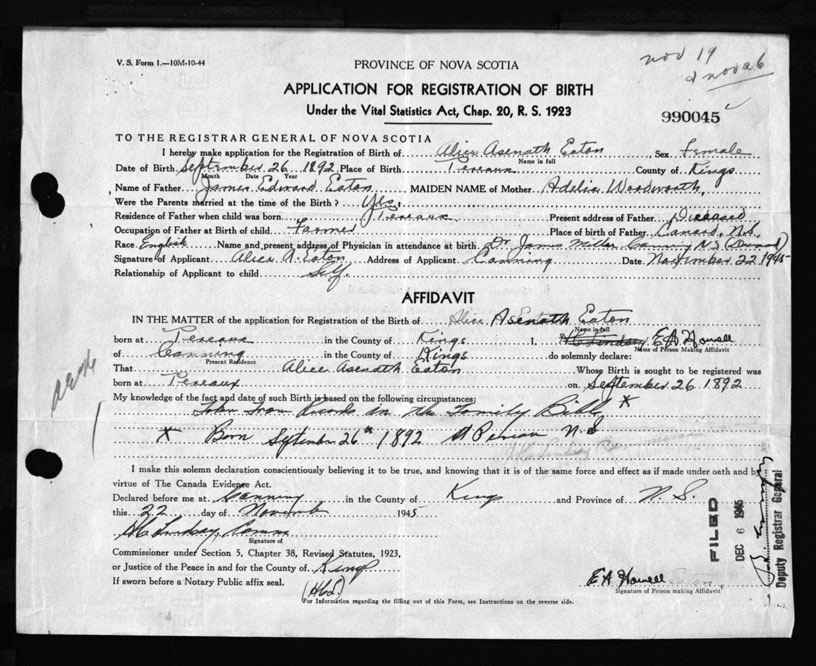 V. S. Form 1.—10M-10-44
nov 19
& nov 26
PROVINCE OF NOVA SCOTIA
APPLICATION FOR REGISTRATION OF BIRTH
Under the Vital Statistics Act, Chap. 20, R. S. 1923
990045
TO THE REGISTRAR GENERAL OF NOVA SCOTIA
I hereby make application for the Registration of Birth of Alice Asenath Eaton Sex Female
Name in full
Date of Birth September 26 1892 Place of Birth Pereaux County of Kings
Month Date Year
Name of Father James Edward Eaton MAIDEN NAME of Mother Adelia Woodworth
Were the Parents married at the time of the Birth? Yes.
Residence of Father when child was born Pereaux Present address of Father Deceased
Occupation of Father at Birth of child Farmer Place of birth of Father Canard, N.S.
Race English Name and present address of Physician in attendance at birth Dr. James Miller Canning N.S. (Deceased)
Signature of Applicant Alice A. Eaton Address of Applicant Canning Date November 22 1945
Relationship of Applicant to child Self.
AFFIDAVIT
IN THE MATTER of the application for Registration of the Birth of Alice Asenath Eaton
Name in full
born at Pereaux in the County of Kings I, H C Lindsay E A Howell
Name of Person Making Affidavit
of Canning in the County of Kings do solemnly declare:
Present Residence
That Alice Asenath Eaton Whose Birth is sought to be registered was
born at Pereaux on September 26 1892
My knowledge of the fact and date of such Birth is based on the following circumstances:
Taken from Records in the Family Bible X
X Born September 26th 1892 at N.S
I make this solemn declaration conscientiously believing it to be true, and knowing that it is of the same force and effect as if made under oath and by
virtue of The Canada Evidence Act.
Declared before me at Canning in the County of Kings and Province of N. S.
this 22 day of November 1945
H C Lindsay, Comm
Signature of
Commissioner under Section 5, Chapter 38, Revised Statutes, 1923,
or Justice of the Peace in and for the County of Kings
If sworn before a Notary Public affix seal.
(HCL)
E A Howell
Signature of Person making Affidavit
For Information regarding the filling out of this Form, see Instructions on the reverse side.
FILED
DEC 6 1945
Deputy Registrar General